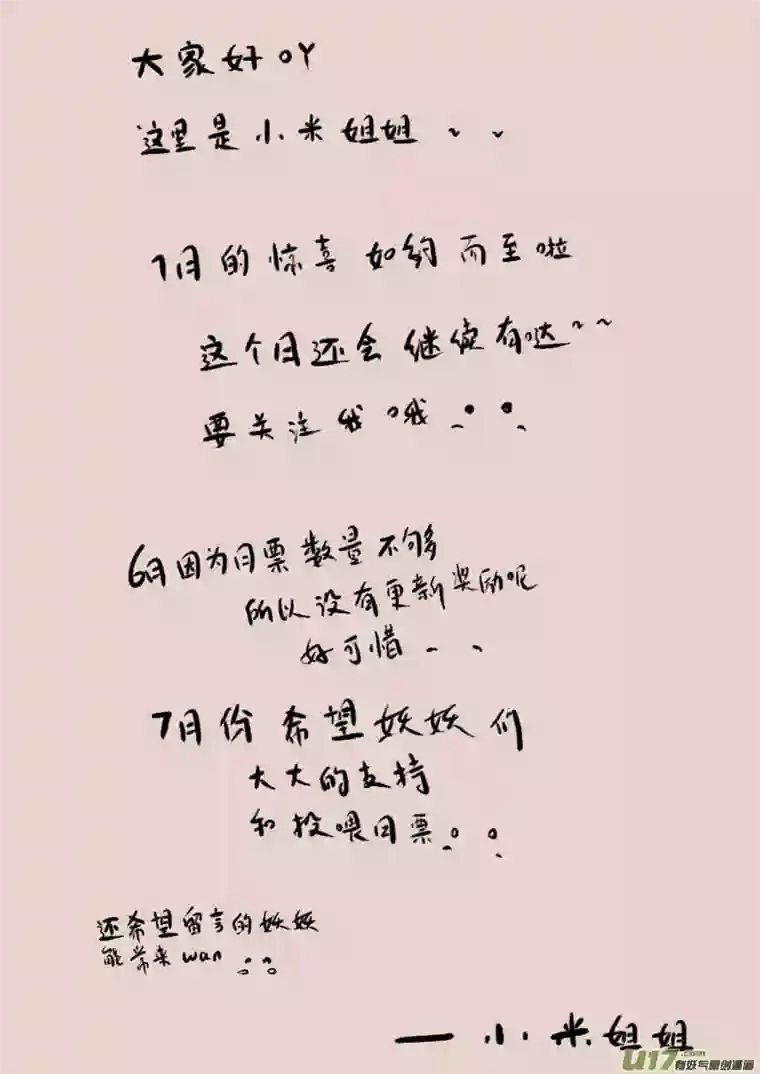 大家好吖
这里是小米姐姐~~
7月的惊喜如约而至啦
这个月还会继续有哒~~
要关注我哦
6月因为月票数量不够
所以没有更新奖励呢
好可惜
7月份希望妖妖们
大大的支持
和投喂月票
还希望留言的妖妖
能常来wan
一小米姐姐
U17.com
有妖气原创漫画